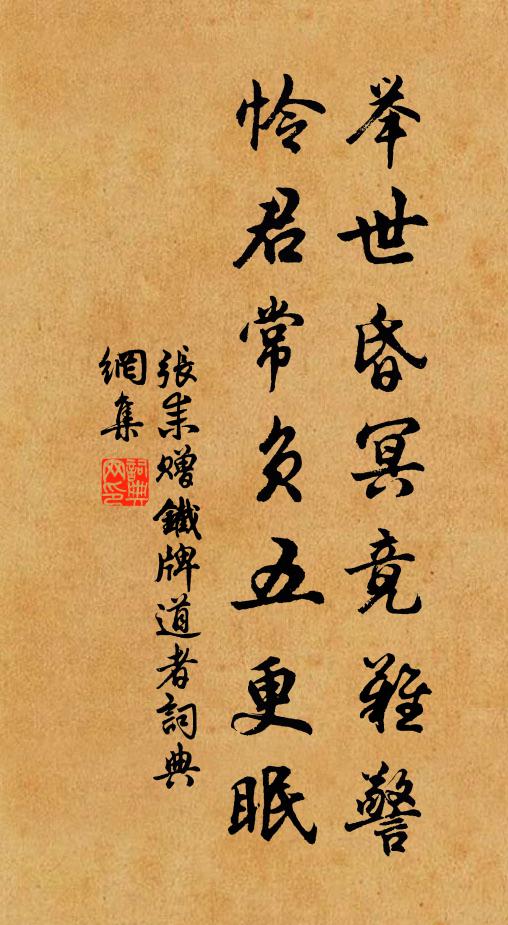 举世昏冥竟难警
怜君常负五更眠
張耒赠鐵牌道者詞典
網集
詞典
网印